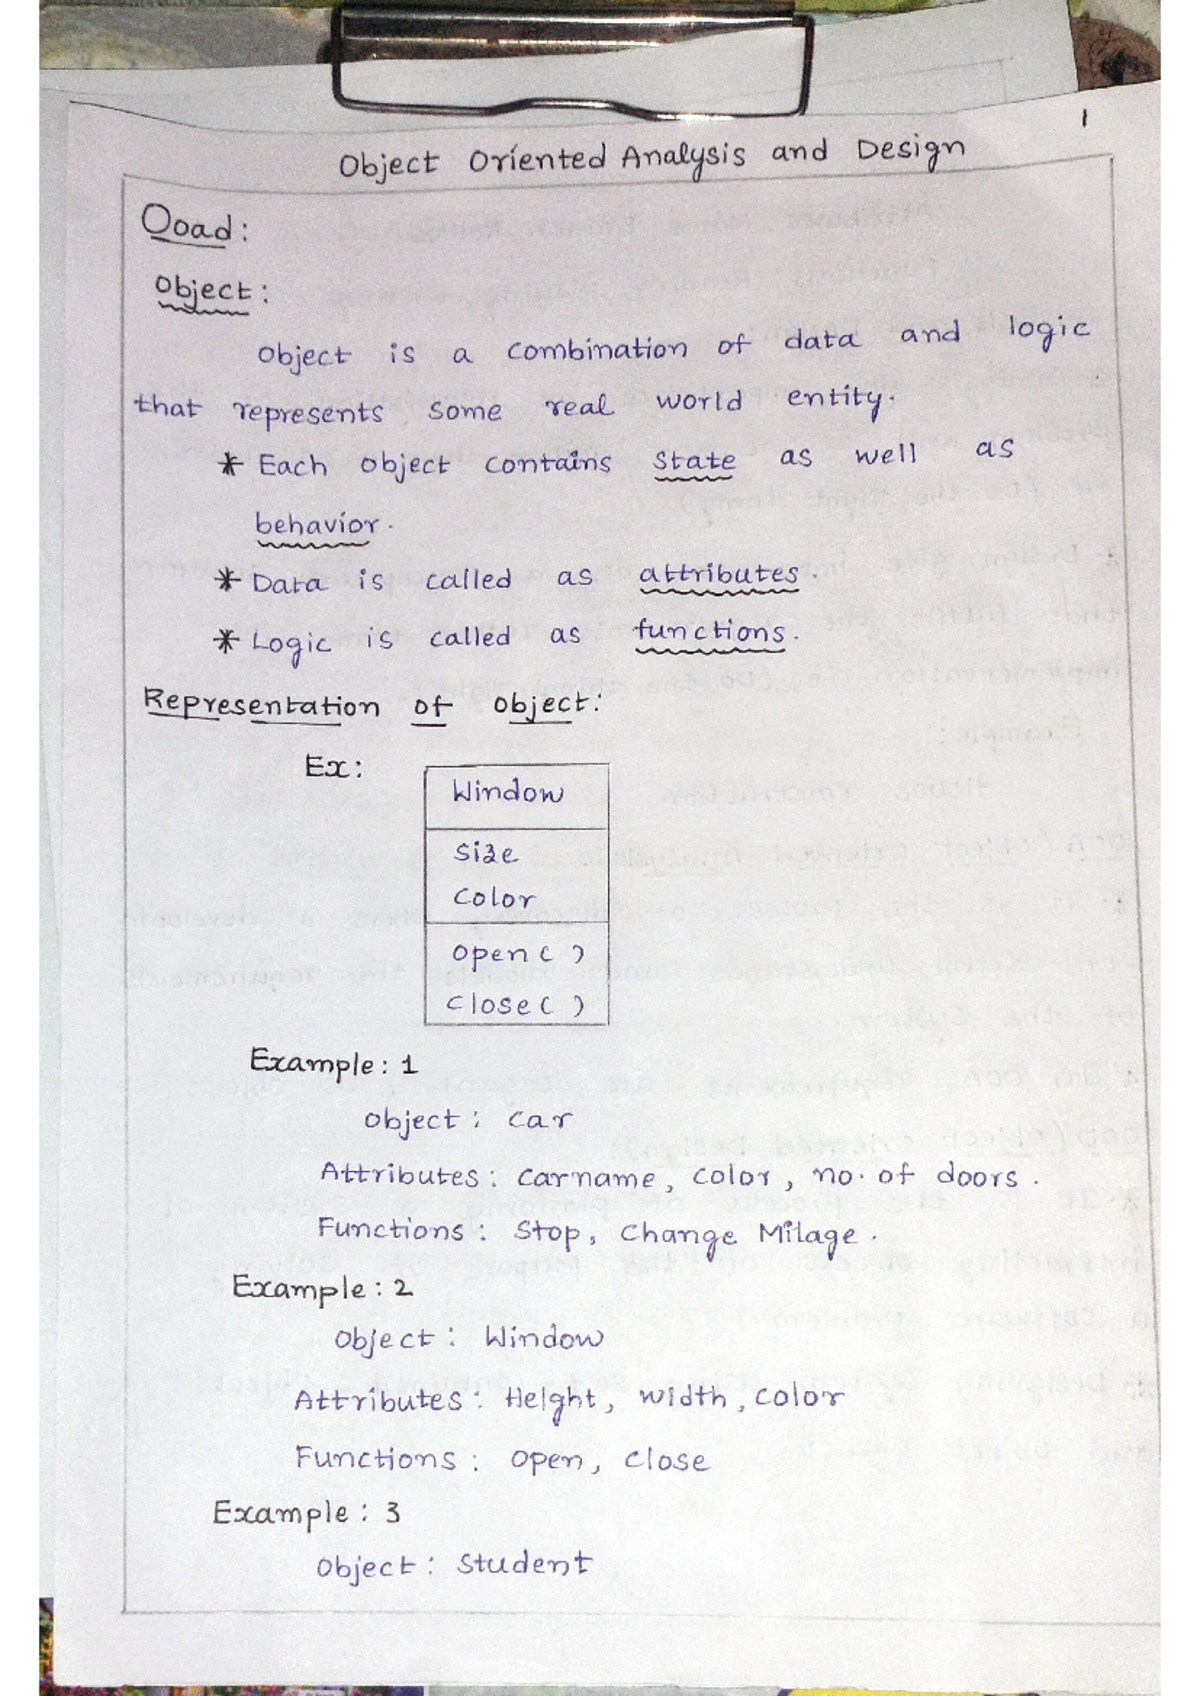 1
Object Oriented Analysis and Design
Ooad:
Object:
Object is a combination of data and logic
that represents some real world entity.
* Each object contains state as well as
behavior.
* Data is called as attributes.
* Logic is called as functions.
Representation of object:
Ex:
Window
Size
Color
Open( )
Close( )
Example: 1
Object: Car
Attributes: Carname, Color, no. of doors.
Functions: Stop, Change Milage.
Example: 2
Object: Window
Attributes: Height, width, color
Functions: Open, Close
Example: 3
Object: Student